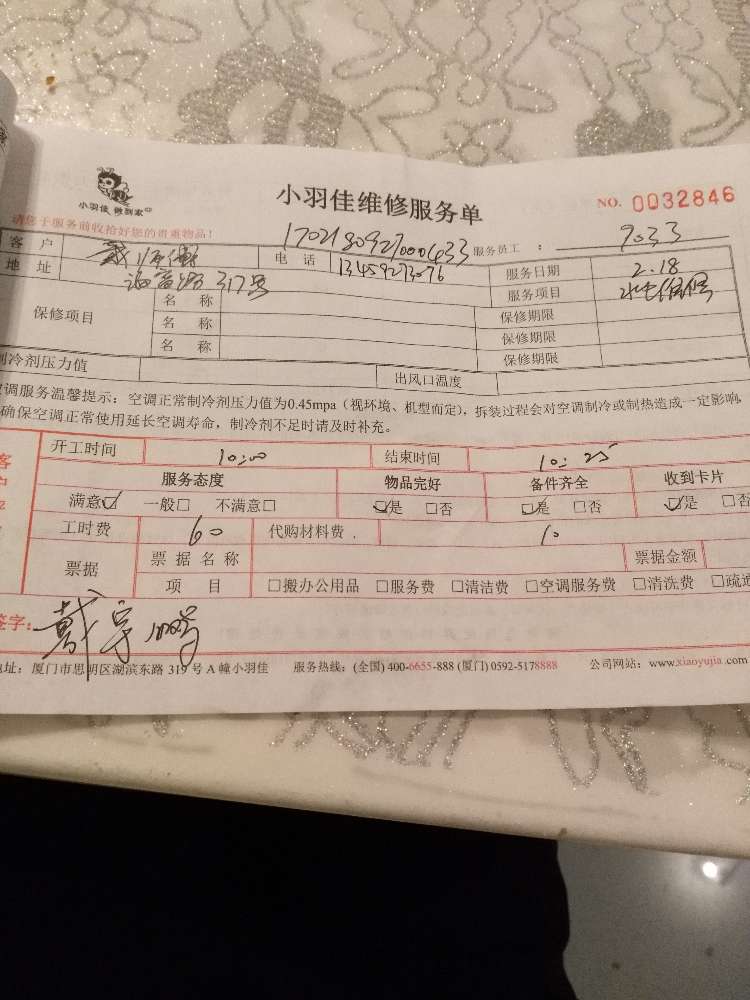 小羽佳 做到家
小羽佳维修服务单
NO. 0032846
请您于服务前收拾好您的贵重物品!
1702180927000433
服务员工 : 9033
客 户 戴 电 话 13459273076 服务日期 2.18
地 址 317号 服务项目 水电维修
保修项目 名 称 保修期限
名 称 保修期限
名 称 保修期限
制冷剂压力值 出风口温度
调服务温馨提示：空调正常制冷剂压力值为0.45mpa（视环境、机型而定），拆装过程会对空调制冷或制热造成一定影响，
确保空调正常使用延长空调寿命，制冷剂不足时请及时补充。
开工时间 10:00 结束时间 10:25
服务态度 物品完好 备件齐全 收到卡片
满意☑ 一般□ 不满意□ ☑是 □否 ☑是 □否 ☑是 □否
工时费 60 代购材料费 10
票据 票据名称 票据金额
项 目 □搬办公用品 □服务费 □清洁费 □空调服务费 □清洗费 □疏通
签字: 戴宇
地址：厦门市思明区湖滨东路 319 号 A 幢小羽佳 服务热线：(全国) 400-6655-888 (厦门) 0592-5178888 公司网站：www.xiaoyujia.com